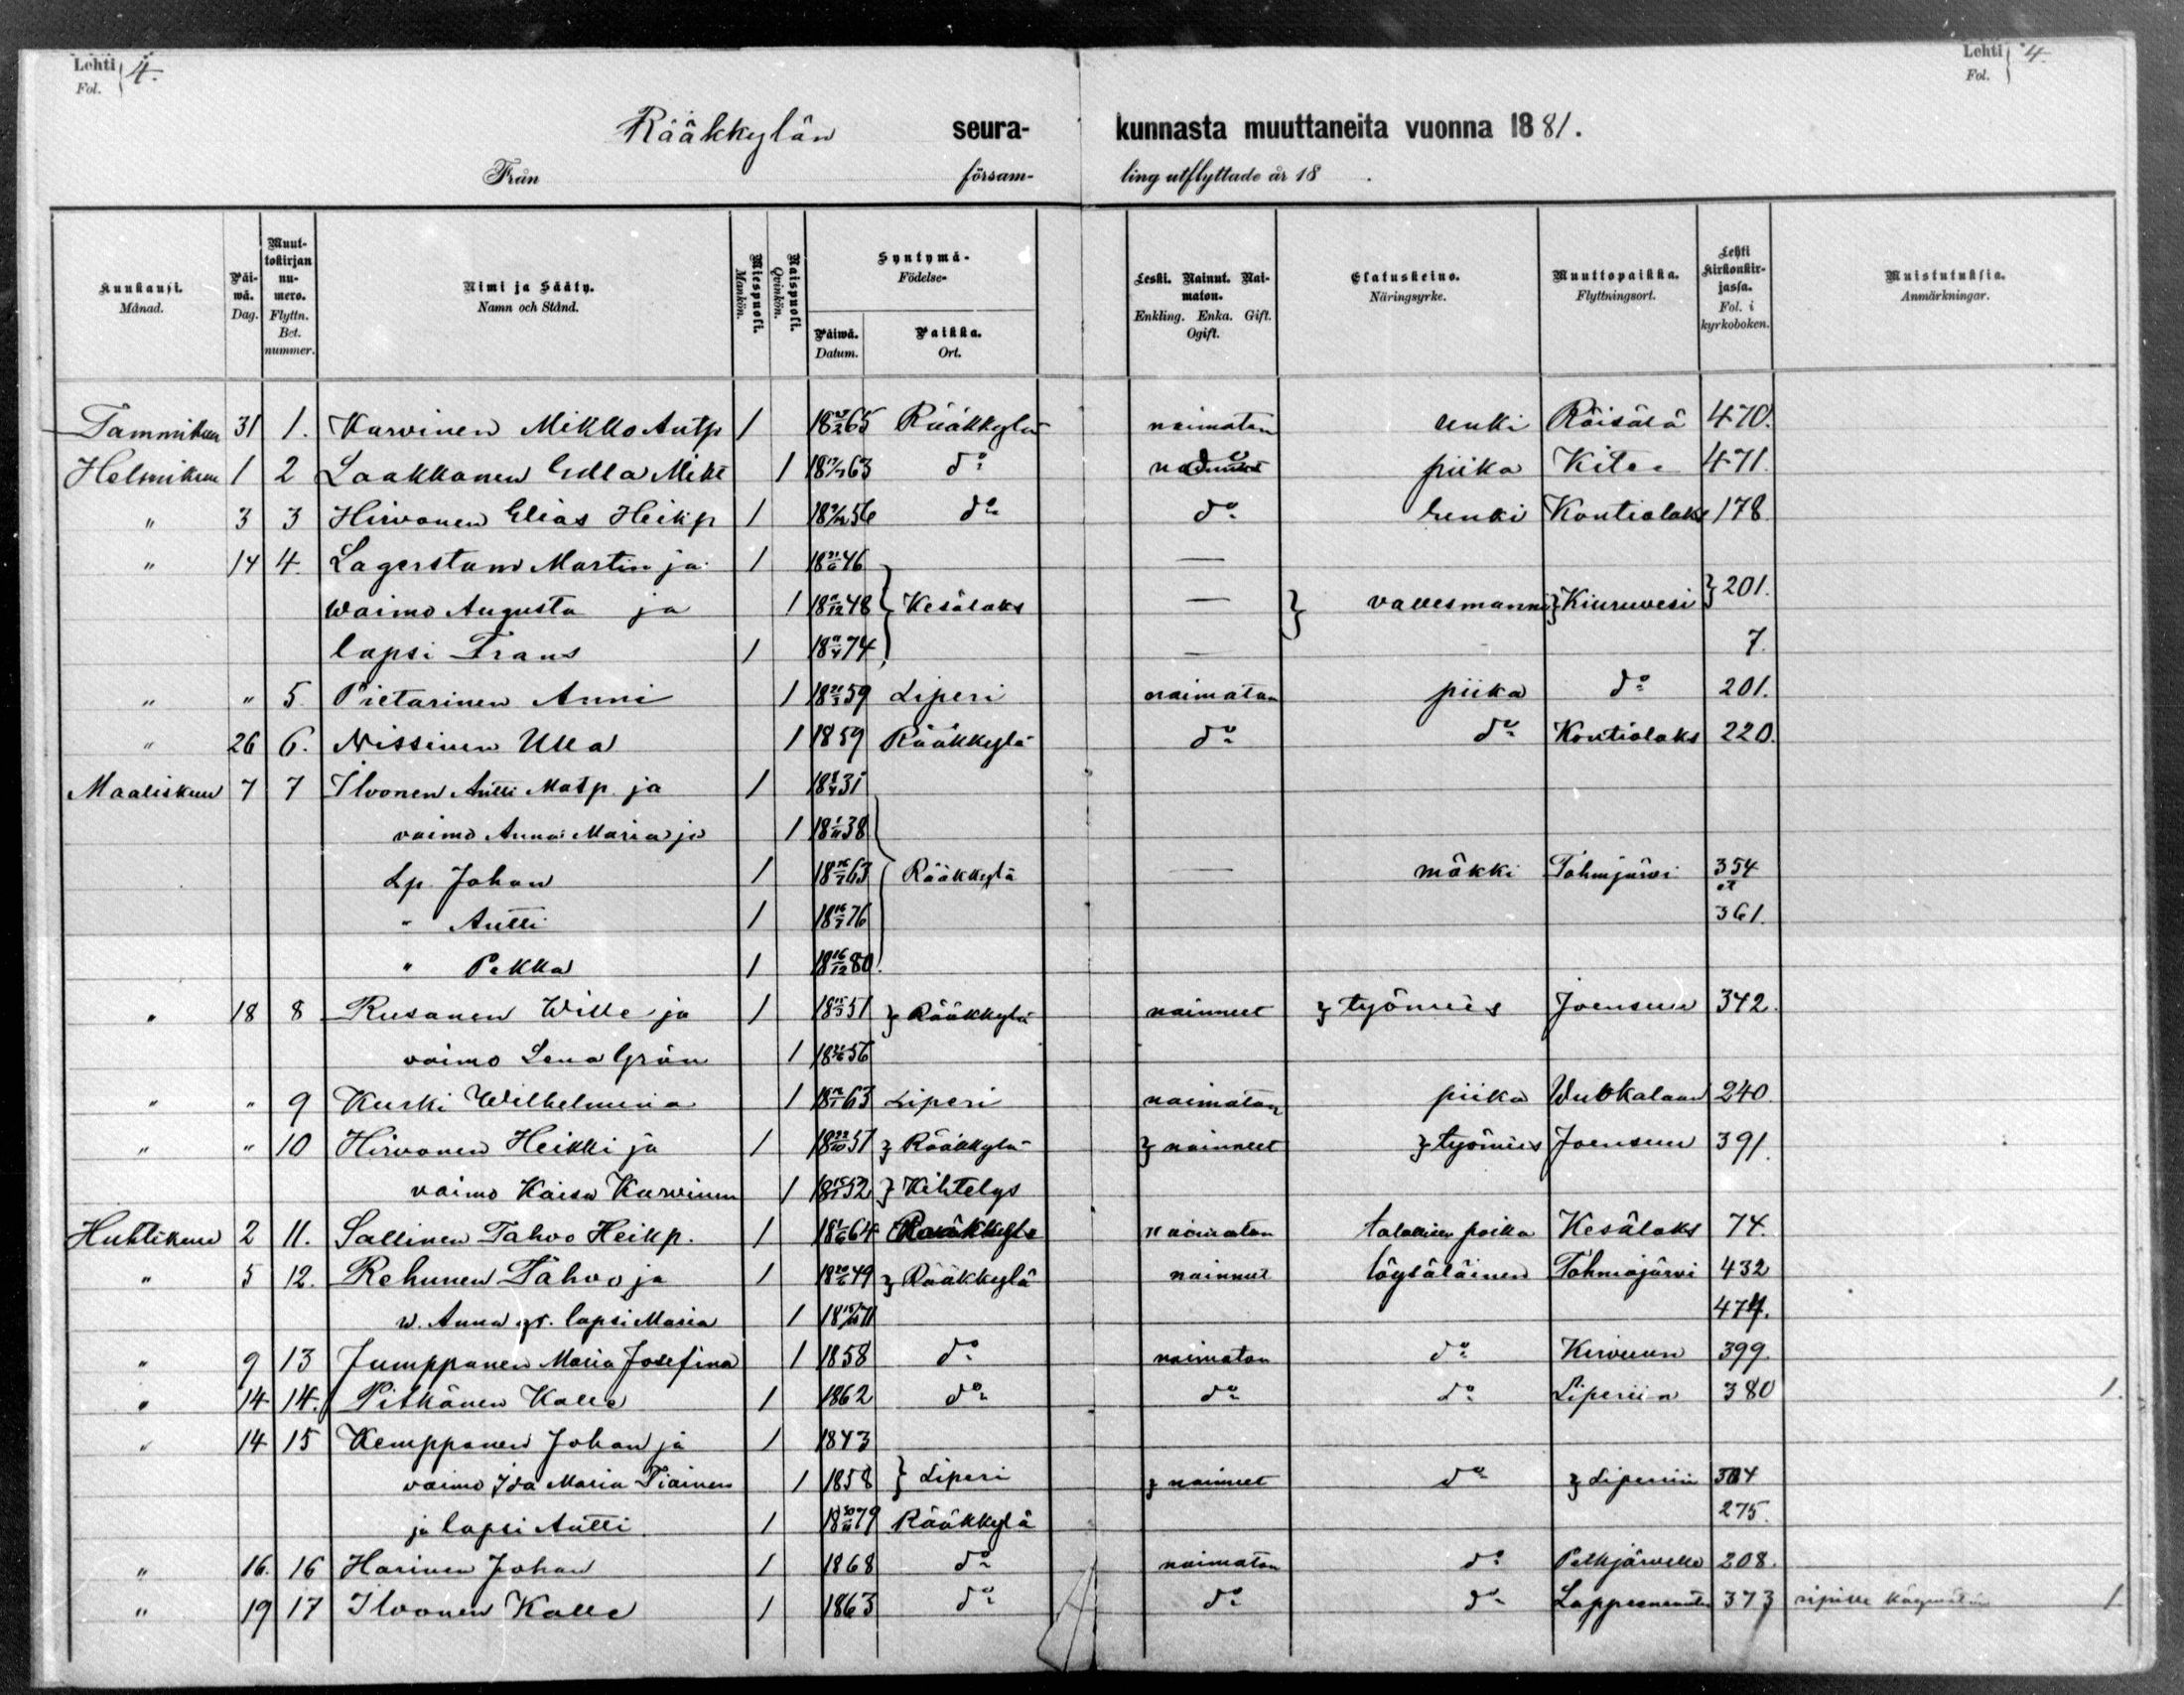 Lehti 4.
Fol.
Lehti 4.
Fol.
Rääkkylän seura- kunnasta muuttaneita vuonna 1881.
Från försam- ling utflyttade år 18 .
Kuukausi. Månad.
Päi-wä. Dag.
Muut-tokirjan nu-mero. Flyttn. Bet. nummer.
Nimi ja Sääty. Namn och Stånd.
Miespuoli. Mankön.
Naispuoli. Qvinkön.
Syntymä- Födelse-
Päiwä. Datum.
Paikka. Ort.
Leski. Nainut. Nai-maton. Enkling. Enka. Gift. Ogift.
Elatuskeino. Näringsyrke.
Muuttopaikka. Flyttningsort.
Lehti kirkonkir-jassa. Fol. i kyrkoboken.
Muistutuksia. Anmärkningar.
Tammikuu 31 1. Karvinen Mikko Antp 1 1865 Rääkkylä naimaton renki Räisälä 470.
Helmikuu 1 2 Laakkonen Edla Mikt 1 1863 do do piika Kitee 471.
" 3 3 Hirvonen Elias Heikp 1 1856 do do renki Kontiolaks 178.
" 14 4. Lagerstam Martin ja 1 1846 —
waimo Augusta ja 1 1848 Kesälaks — Kiuruvesi 201.
lapsi Frans 1 1874 — 7.
" " 5. Pietarinen Anni 1 1859 Liperi naimaton piika do 201.
" 26 6. Nissinen Ulla 1 1859 Rääkkylä do do Kontiolaks 220.
Maaliskuu 7 7 Ilvonen Antti Matp. ja 1 1831
vaimo Anna Maria ja 1 1838
Lp. Johan 1 1863 Rääkkylä — mäkki Tohmjärvi 354 et
" Antti 1 1876 361.
" Pekka 1 18 16/12 80.
" 18 8 Rusanen Wille ja 1 1851 Rääkkylä nainneet työmies Joensuu 342.
vaimo Lena Grön 1 1856
" " 9 Kurki Wilhelmina 1 1863 Liperi naimaton piika 240.
" " 10 Hirvonen Heikki ja 1 18 22/10 51 Rääkkylä nainneet työmies Joensuu 391.
vaimo Kaisa Karvinen 1 1852 Kihtelys
Huhtikuu 2 11. Sallinen Tahvo Heikp. 1 1864 Rääkkylä naimaton talollisen poika Kesälaks 74.
" 5 12. Rehunen Tahvo ja 1 1849 Rääkkylä nainnut löysäläinen Tohmajärvi 432
w. Anna lapsi Maria 1 1871 474.
" 9 13 Jumppanen Maria Josefina 1 1858 do naimaton do 399.
" 14 14. Pitkänen Kalle 1 1862 do do do Liperiin 380 1.
" 14 15 Kemppanen Johan ja 1 1843
vaimo Ida Maria Tiainen 1 1858 Liperi nainneet do Liperiin
ja lapsi Antti 1 1879 Rääkkylä 275.
" 16. 16 Harinen Johan 1 1868 do naimaton do Pelkjärvelle 208.
" 19 17 Ilvonen Kalle 1 1863 do do do 373 ripille käymätön 1